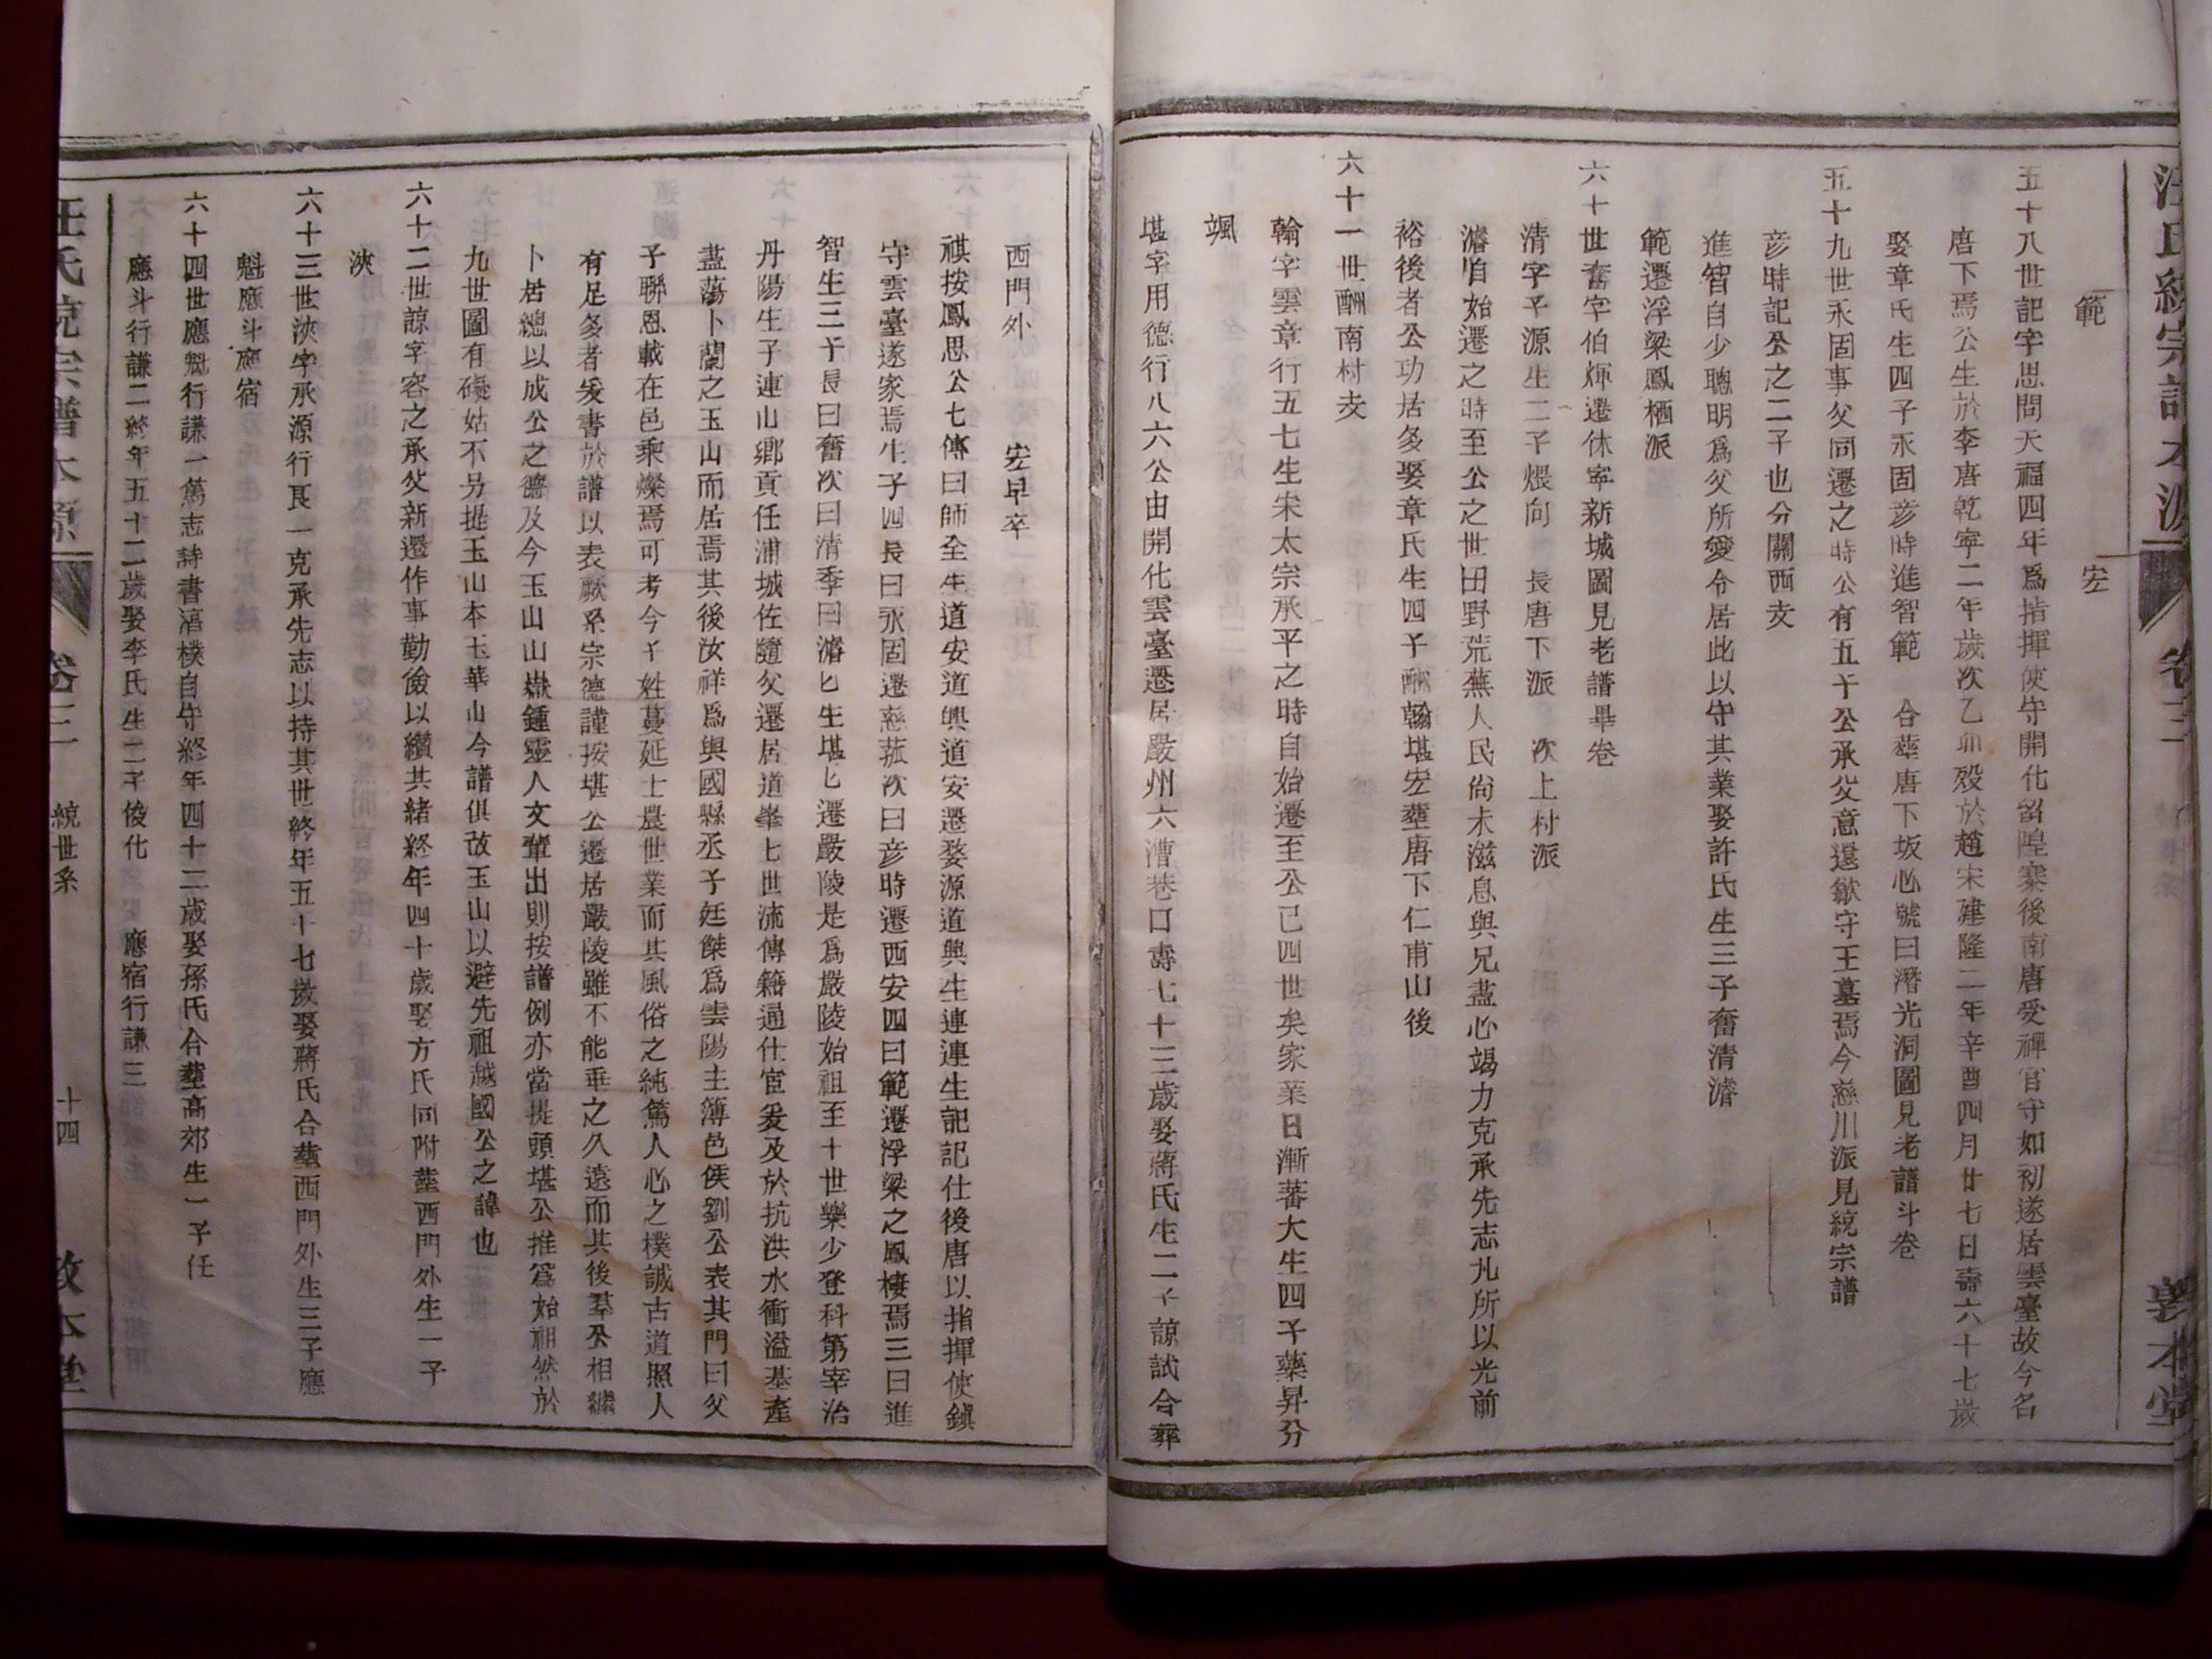 汪氏統宗譜本源 卷三 敦本堂
範 宏
五十八世記字思問天福四年爲指揮使守開化畱隍寨後南唐受禪官守如初遂居雲臺故今名
唐下焉公生於李唐乾寧二年歲次乙卯殁於趙宋建隆二年辛酉四月廿七日壽六十七歲
娶章氏生四子永固彦時進智範 合葬唐下坂心號曰潛光洞圖見老譜斗卷
五十九世永固事父同遷之時公有五子公承父意還歙守王墓焉今慈川派見統宗譜
彦時記公之二子也分關西支
進智自少聰明爲父所愛令居此以守其業娶許氏生三子奮清濬
範遷浮梁鳳栖派
六十世奮字伯煇遷休寧新城圖見老譜畢卷
清字子源生二子煨向 長唐下派 次上村派
濬自始遷之時至公之世田野荒蕪人民尙未滋息與兄盡心竭力克承先志凡所以光前
裕後者公功居多娶章氏生四子酬翰堪宏塟唐下仁甫山後
六十一世酬南村支
翰字雲章行五七生宋太宗承平之時自始遷至公已四世矣家業日漸蕃大生四子藥昇分
颯
堪字用德行八六公由開化雲臺遷居嚴州六漕巷口壽七十三歲娶蔣氏生二子諒試合葬
西門外 宏早卒
祺按鳳思公七傳曰師全生道安道興道安遷婺源道興生連連生記記仕後唐以指揮使鎮
守雲臺遂家焉生子四長曰永固遷慈菰次曰彦時遷西安四曰範遷浮梁之鳳棲焉三曰進
智生三子長曰奮次曰清季曰濬匕生堪匕遷嚴陵是爲嚴陵始祖至十世樂少登科第宰治
丹陽生子連山鄉貢任浦城佐隨父遷居道峯七世流傳籍通仕宦爰及於抗洪水衝溢基產
盡蕩卜蘭之玉山而居焉其後汝祥爲與國縣丞子廷傑爲雲陽主簿邑侯劉公表其門曰父
子聯恩載在邑乘燦焉可考今子姓蔓延士農世業而其風俗之純篤人心之樸誠古道照人
有足多者爰書於譜以表厥系宗德謹按堪公遷居嚴陵雖不能垂之久遠而其後羣公相繼
卜居總以成公之德及今玉山山嶽鍾靈人文輩出則按譜例亦當提頭堪公推爲始祖然於
九世圖有礙姑不另提玉山本玉華山今譜俱改玉山以避先祖越國公之諱也
六十二世諒字容之承父新遷作事勤儉以纘其緒終年四十歲娶方氏同附塟西門外生一子
浹
六十三世浹字承源行長一克承先志以持其世終年五十七歲娶蔣氏合塟西門外生三子應
魁應斗應宿
六十四世應魁行謙一篤志詩書湻樸自守終年四十二歲娶孫氏合塟高郊生一子任
應斗行謙二終年五十二歲娶李氏生二子俊化 應宿行謙三
汪氏統宗譜本源 卷三 統世系 十四 敦本堂